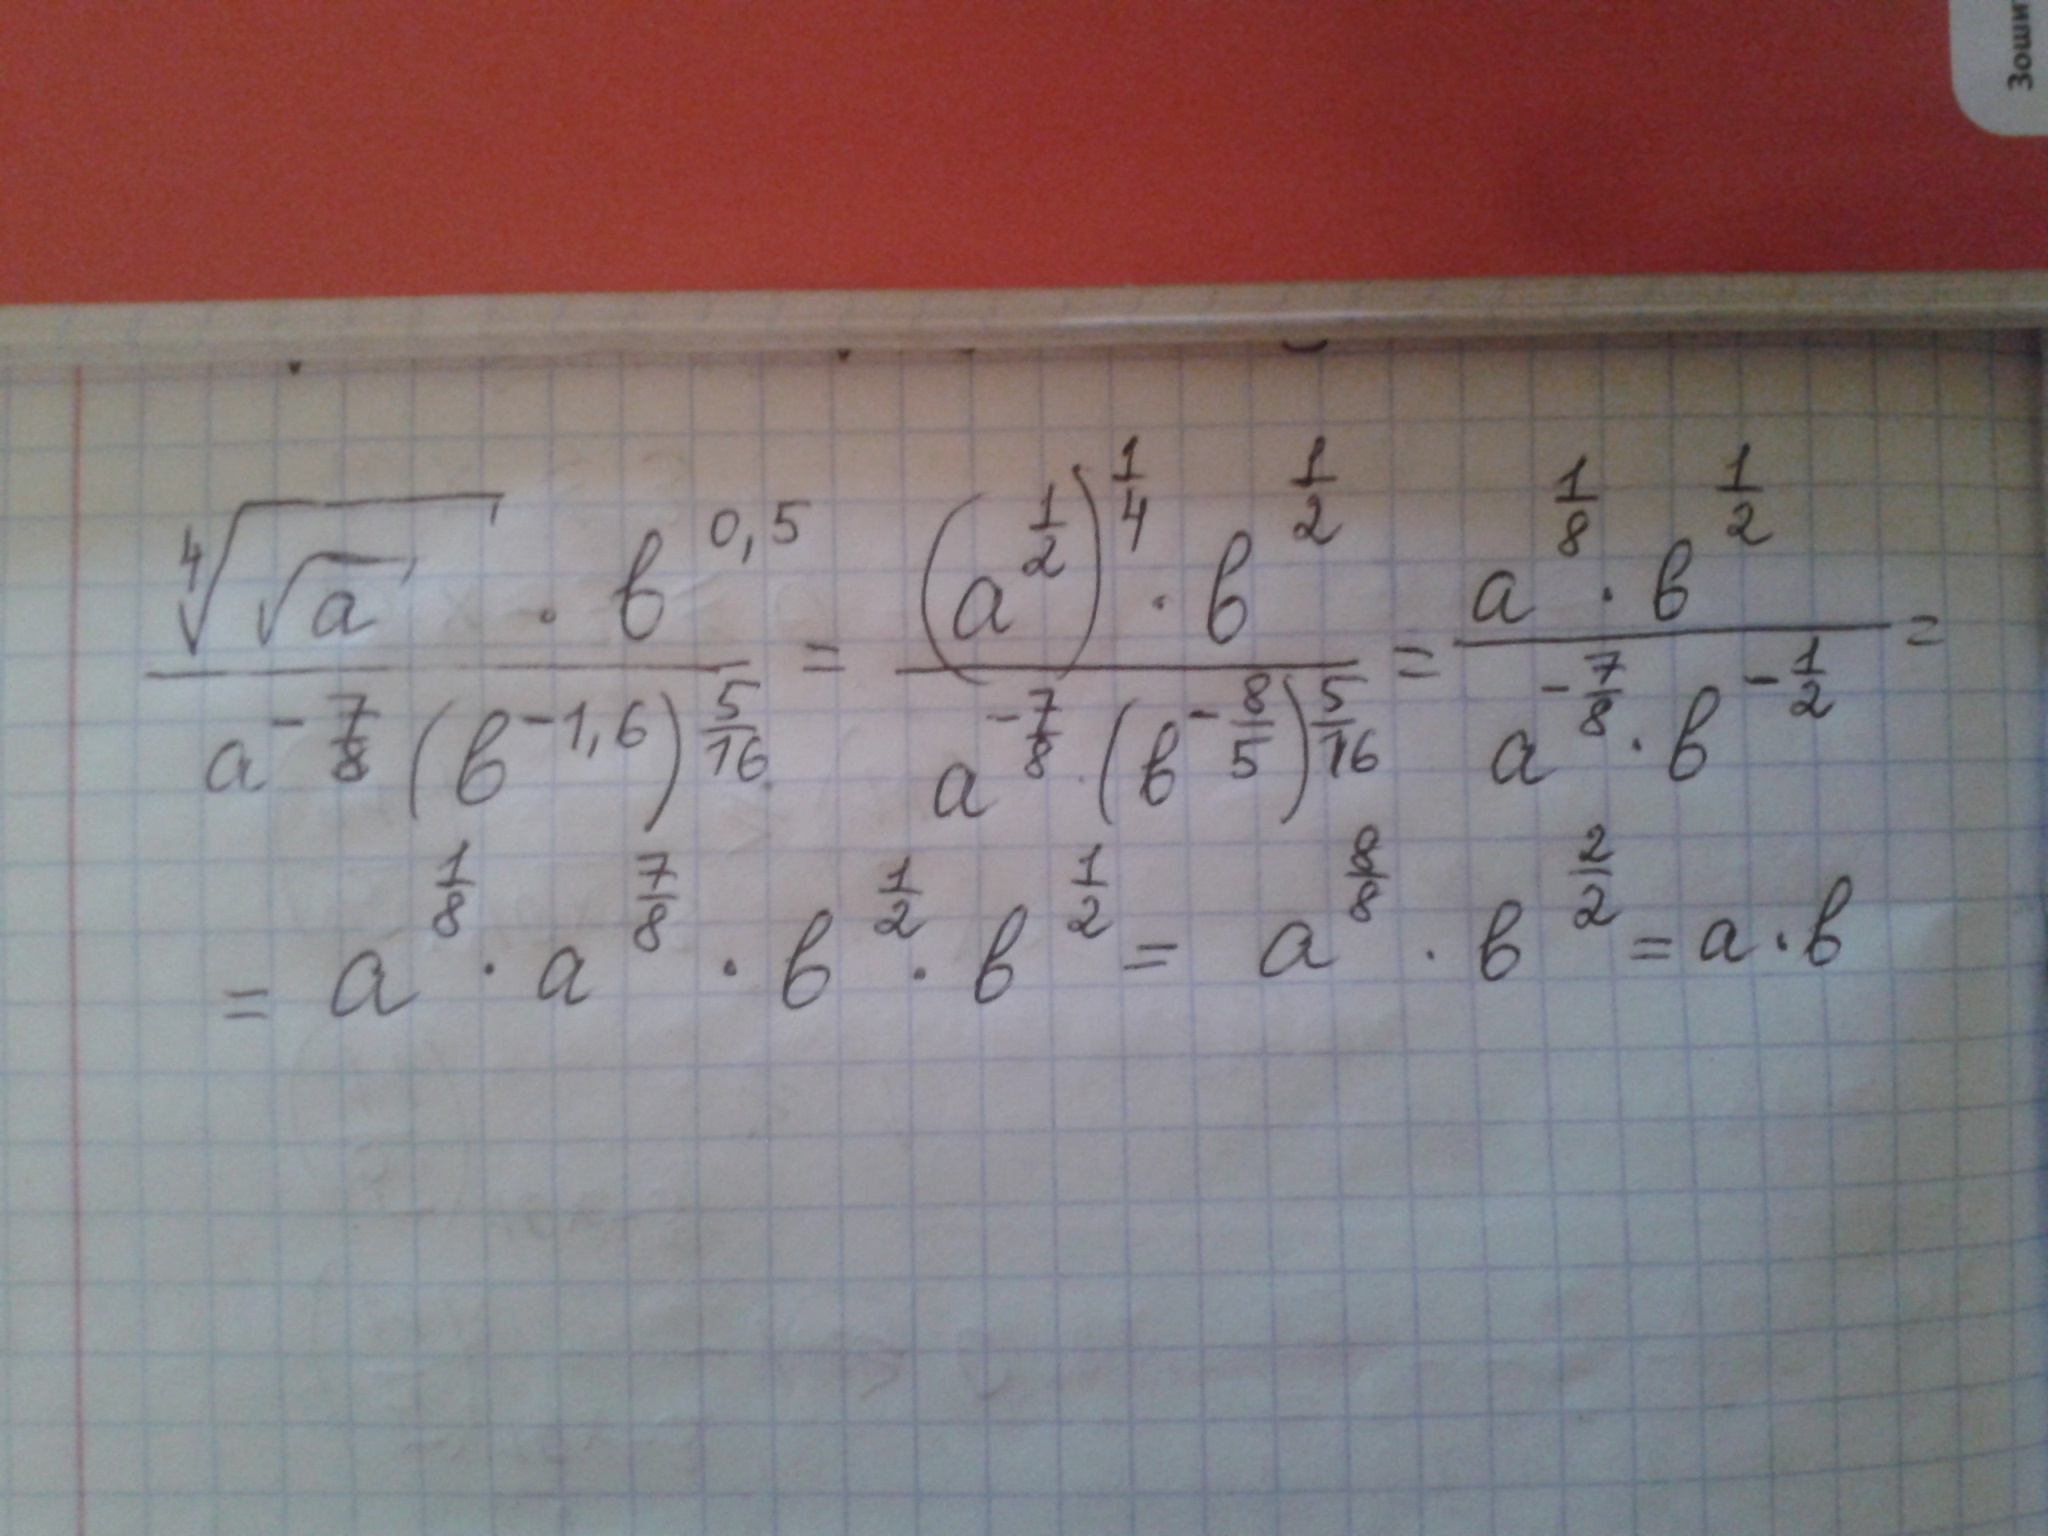 Зоши
\frac{\sqrt[4]{\sqrt{a}} \cdot b^{0,5}}{a^{-\frac{7}{8}} (b^{-1,6})^{\frac{5}{16}}} = \frac{(a^{\frac{1}{2}})^{\frac{1}{4}} \cdot b^{\frac{1}{2}}}{a^{-\frac{7}{8}} \cdot (b^{-\frac{8}{5}})^{\frac{5}{16}}} = \frac{a^{\frac{1}{8}} \cdot b^{\frac{1}{2}}}{a^{-\frac{7}{8}} \cdot b^{-\frac{1}{2}}} =
= a^{\frac{1}{8}} \cdot a^{\frac{7}{8}} \cdot b^{\frac{1}{2}} \cdot b^{\frac{1}{2}} = a^{\frac{8}{8}} \cdot b^{\frac{2}{2}} = a \cdot b